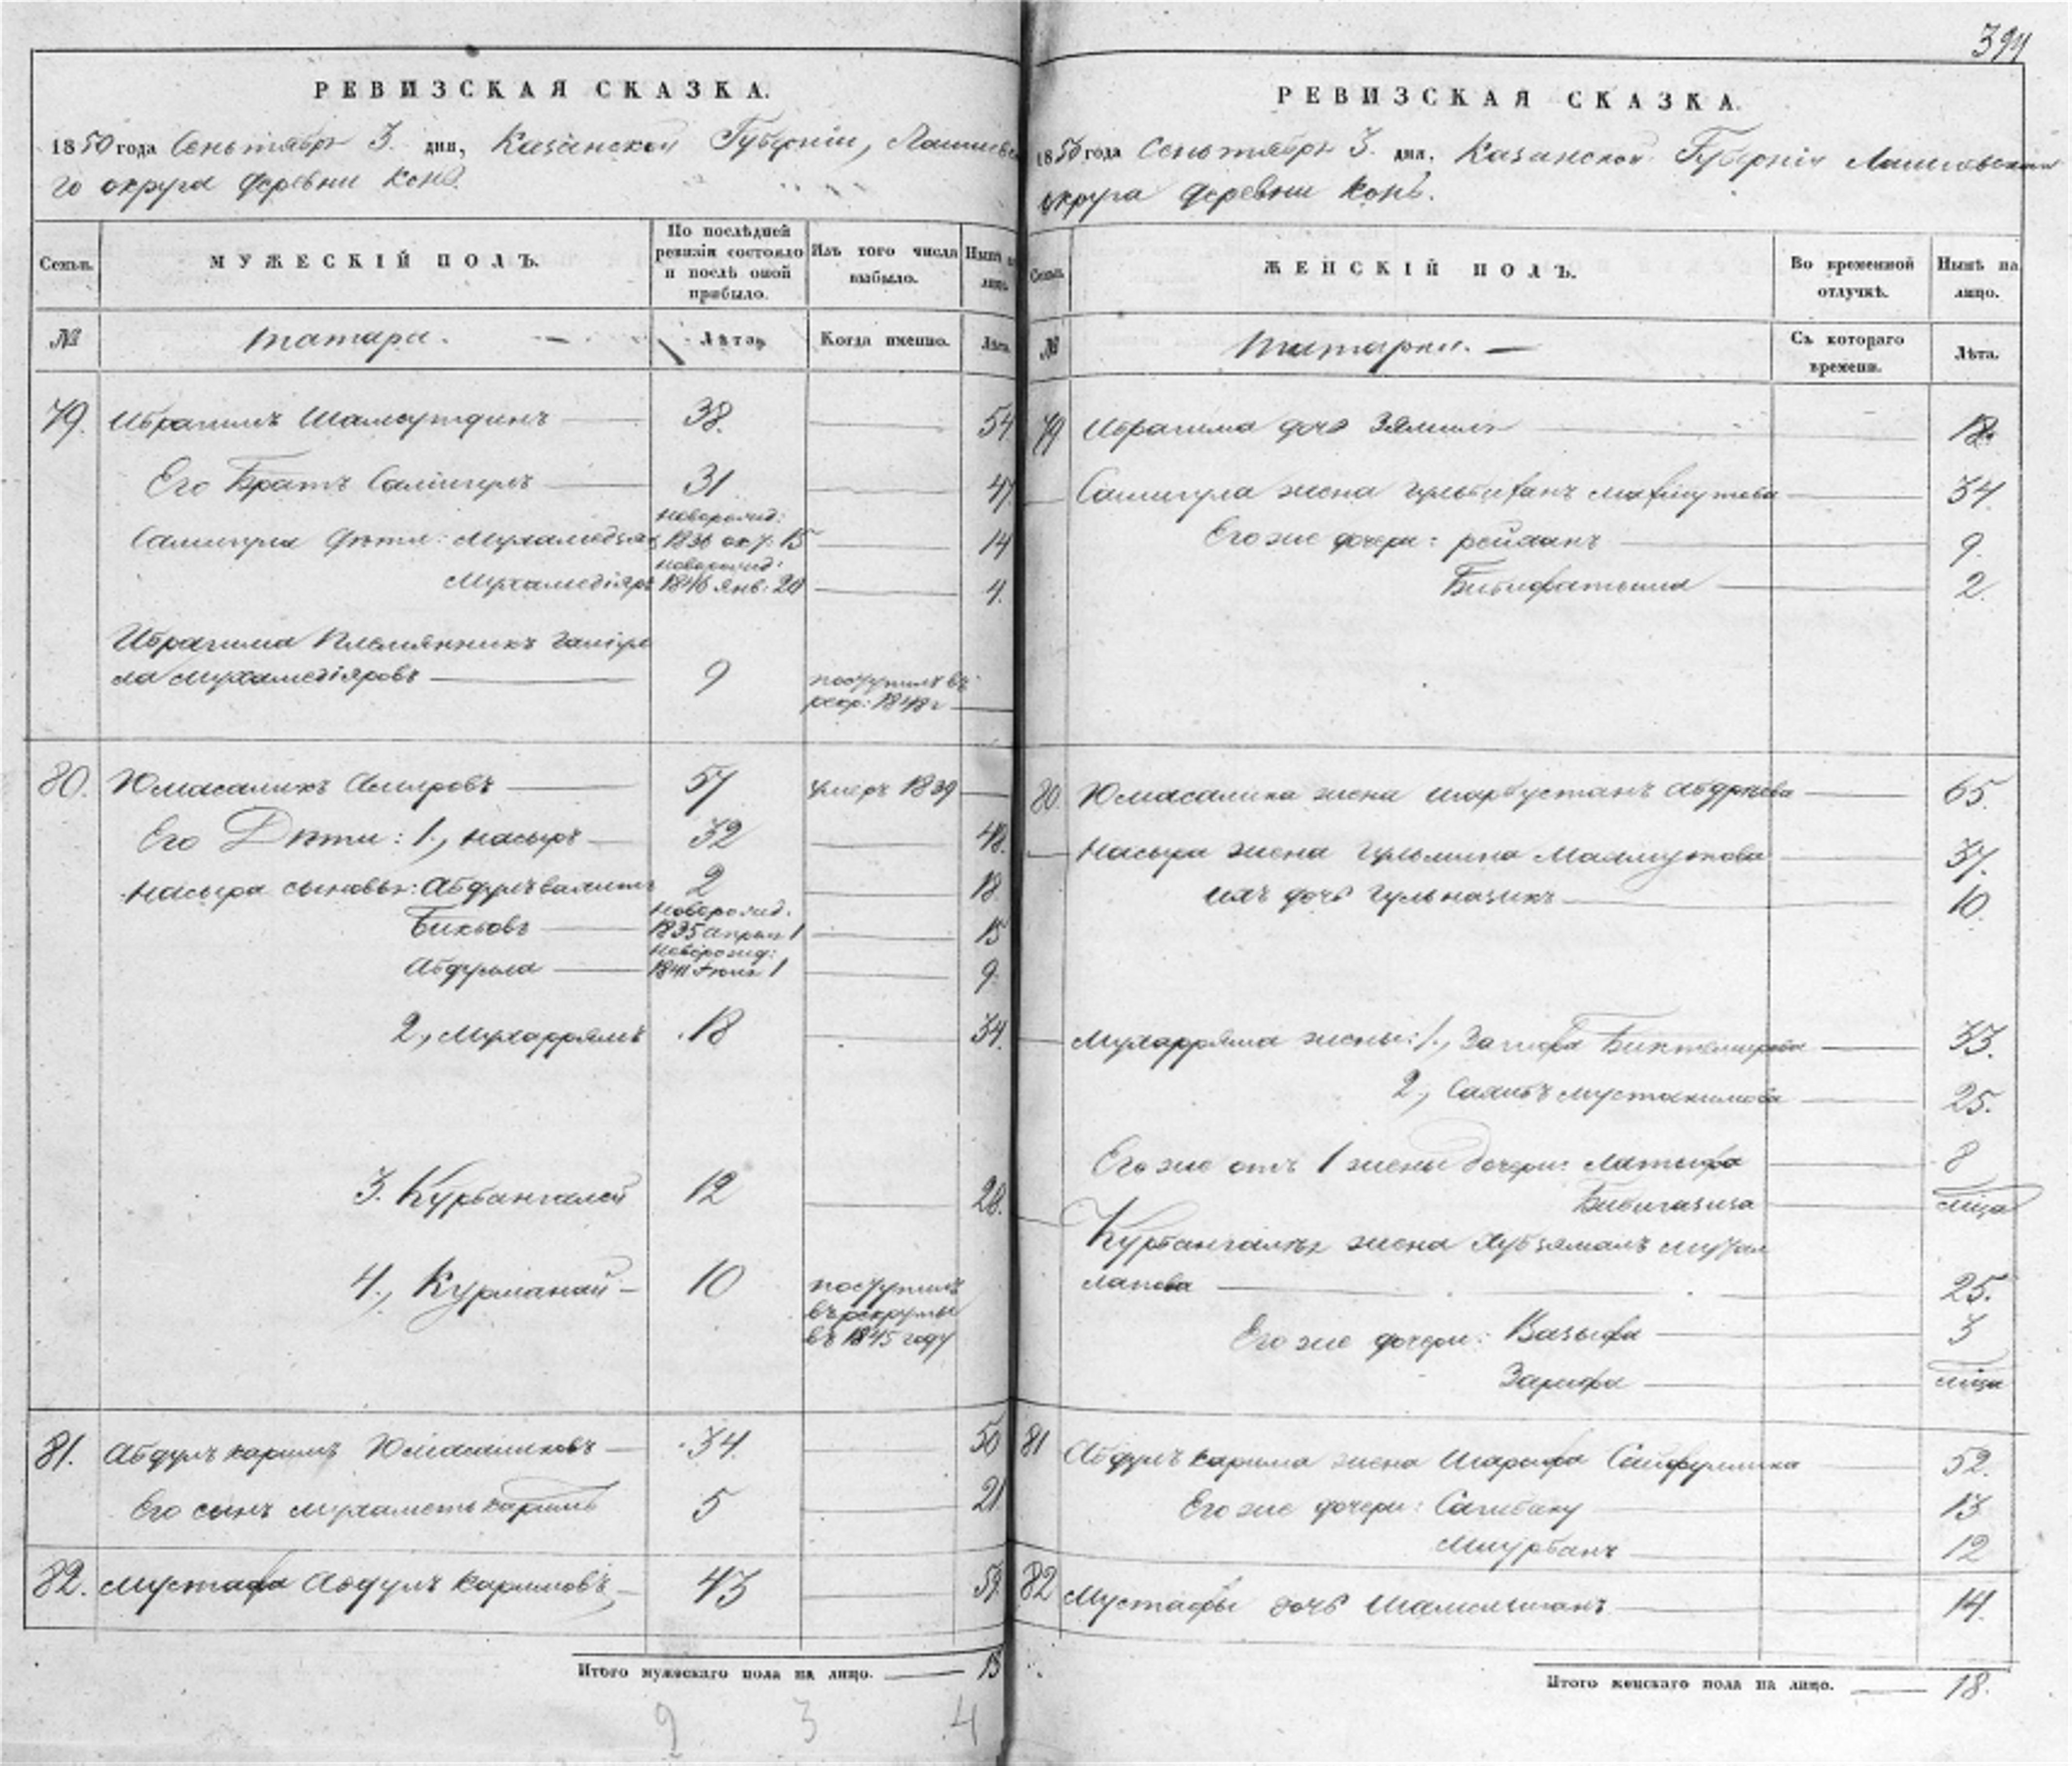 394
РЕВИЗСКАЯ СКАЗКА.
1850 года Сентября 3. дня, Казанской Губерніи, Лаишевска
го округа деревни Конь.
Семьи. МУЖЕСКІЙ ПОЛЪ. По послѣдней ревизіи состояло и послѣ оной прибыло. Изъ того числа выбыло. Нынѣ на лицо.
№ татара. Лѣта. Когда именно. Лѣта.
79. Ибрагимъ Шамсутдинъ 38. 54
Его Братъ Салишгулъ 31 47
Салишгула дѣти: Мухамедзян новорожд: 1836 окт: 15 14
Мухамедіяръ новорожд: 1846 Янв: 20 4.
Ибрагима Племянникъ
ла Мухамедіяровъ 9 поступилъ въ рекр: 1848 г
80. Юмасаликъ Амировъ 57 умеръ 1839
Его Дѣти: 1., Насыръ 32 48.
Насыра сыновья: Абдулъвалитъ 2 18
Биккъовъ новорожд. 1835 апрѣл 1 15
Абдулла новорожд: 1841 Іюня 1 9.
2., Мухаррямъ 18 34.
3. Курбангалей 12 28.
4., Курманай 10 поступилъ
въ рекруты
въ 1845 году
81. Абдулъ каримъ Юмасаликовъ 34. 50
Его сынъ Мухаметь каримъ 5 21
82. Мустафа Абдулъ Каримовъ 43 59.
Итого мужескаго пола на лицо. 13
2 3 4
РЕВИЗСКАЯ СКАЗКА.
1850 года Сентября 3. дня, Казанской Губерніи Лаишевскаго
округа деревни Конь.
Семьи. ЖЕНСКІЙ ПОЛЪ. Во временной отлучкѣ. Нынѣ на лицо.
№ татарки. Съ котораго времени. Лѣта.
79 Ибрагима дочь Зямиля 18.
Салишгула жена 34.
Его же дочери: рейханъ 9.
Бибифатыма 2.
80. Юмасалика жена шарбустанъ Абдряева 65.
Насыра жена Гульмина Маямутова 37.
ихъ дочь Гульназикъ 10.
Мухарряма жены: 1., Загифа Биктемирова 33.
2., Салибъ Мустакимова 25.
Его же отъ 1 жены дочери: Латыфа 8
Бибигазиза мѣсяца
Курбангалея жена Хубзямалъ
25.
Его же дочери: Вазыфа 3
Зарифа мѣсяца
81 Абдулъ Карима жена Шарифа Сайфулина 52.
Его же дочери: Сагибану 13
Миурбанъ 12
82 Мустафы дочь 14.
Итого женскаго пола на лицо. 18.